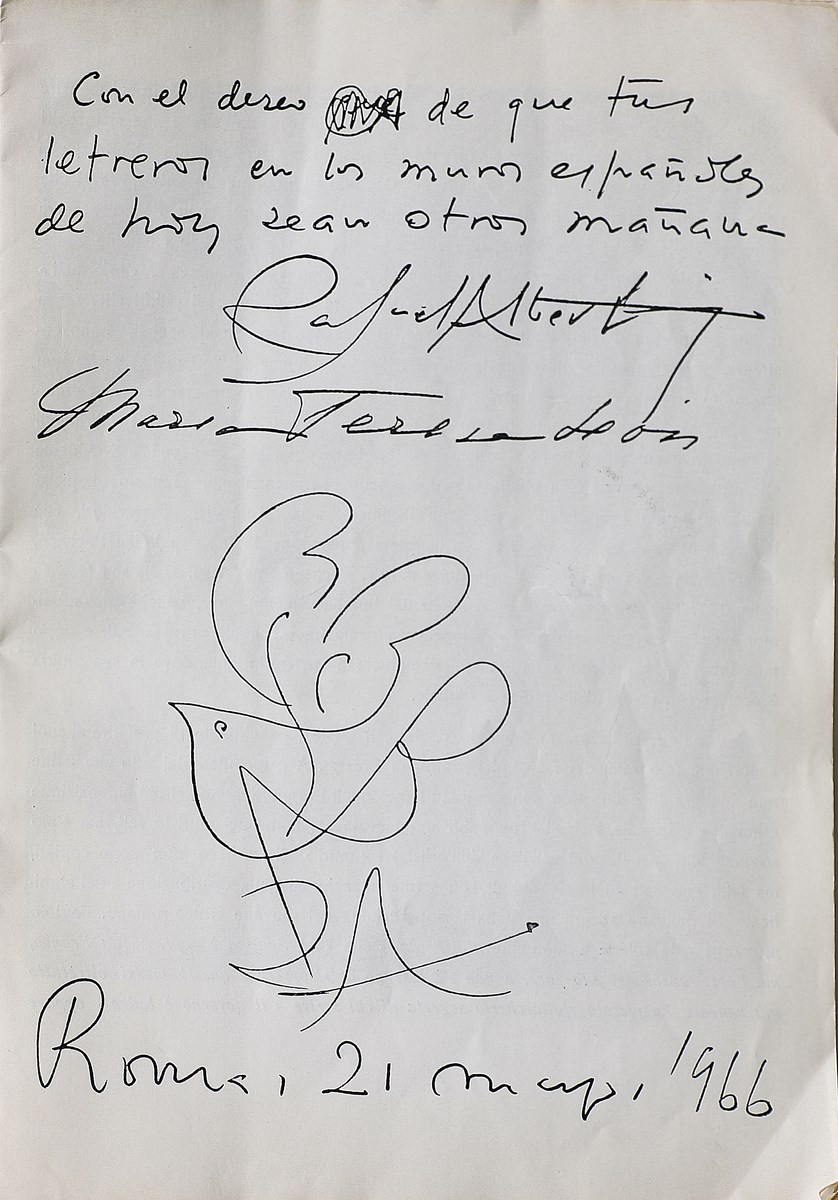 Con el deseo de que tus
letreros en los muros españoles
de hoy sean otros mañana
Rafael Alberti
Maria Teresa León
RA
Roma, 21 mayo, 1966